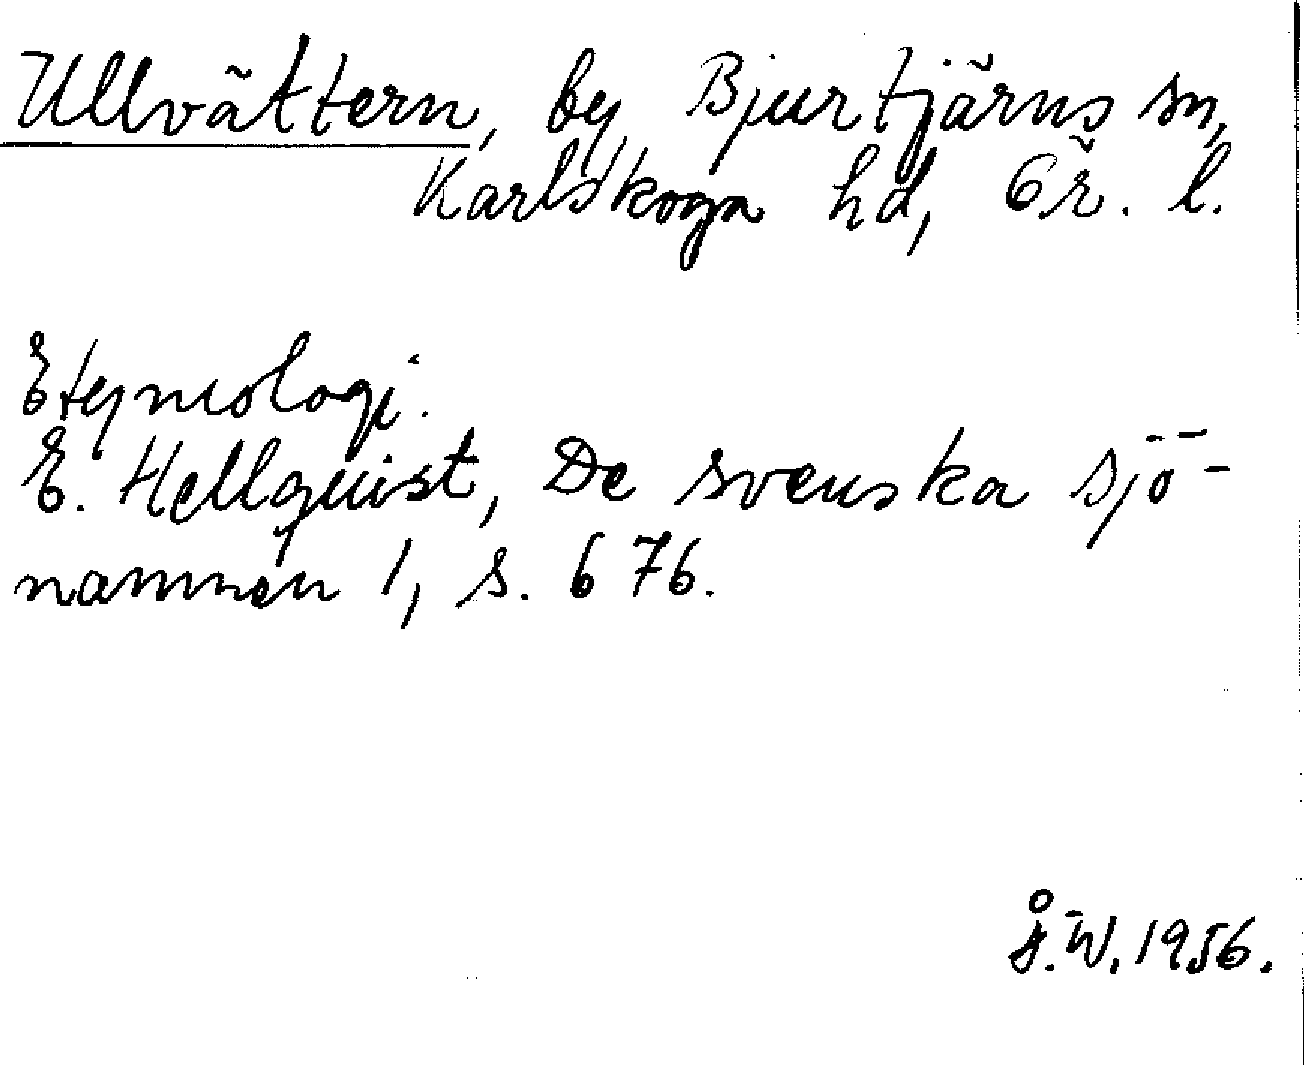 Ullvättern, by, Bjurtjärns sn,
Karlskoga hd, Ör. l.
Etymologi.
E. Hellquist, De svenska sjö-
namnen 1, s. 676.
Å.W. 1956.